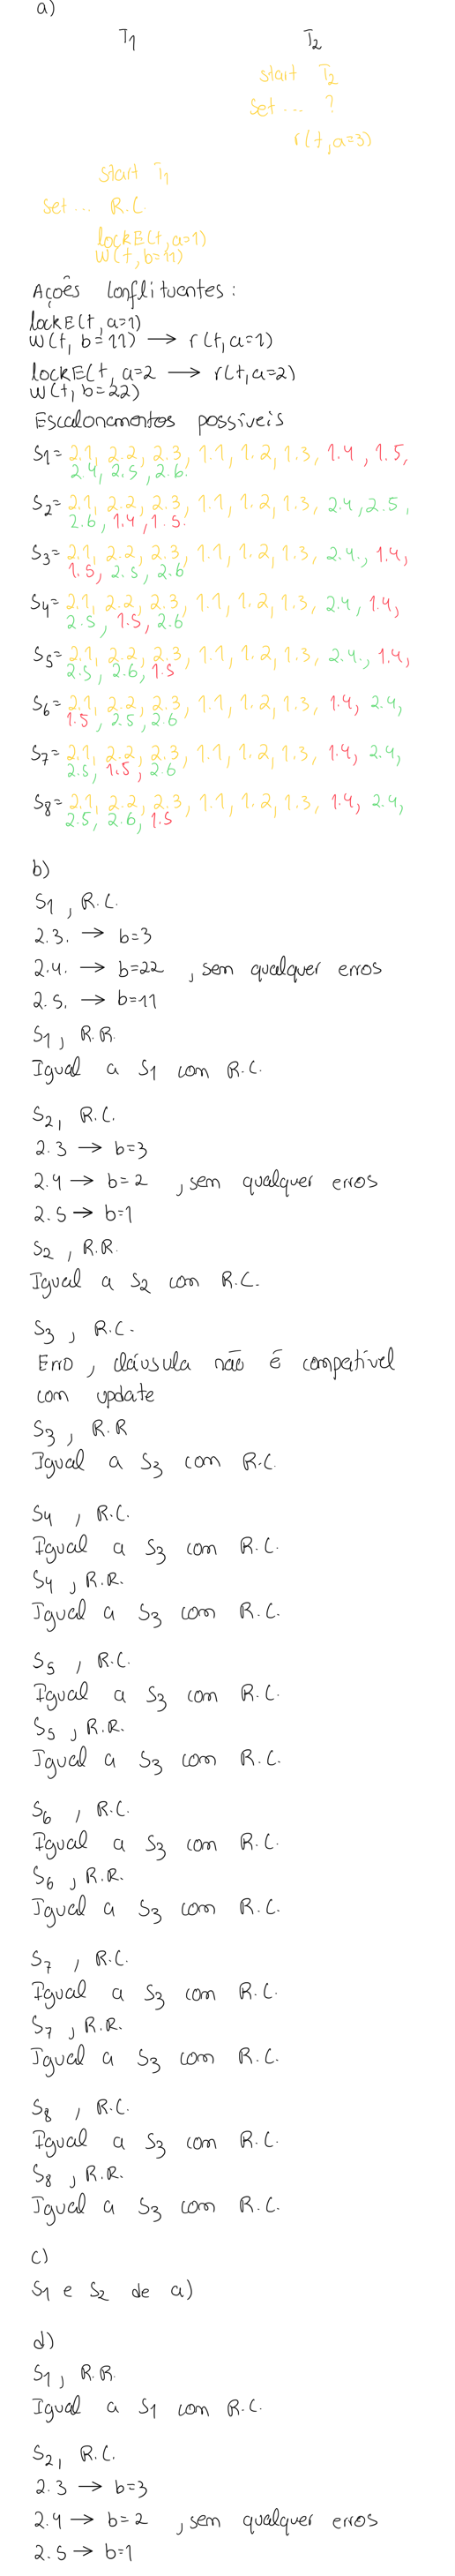 a)
T1 T2
start T2
Set ... ?
r(t, a=3)
start T1
Set ... R.C.
lockE(t, a=1)
w(t, b=11)
Ações conflituentes:
lockE(t, a=1)
w(t, b=11) → r(t, a=1)
lockE(t, a=2 → r(t, a=2)
w(t, b=22)
Escalonamentos possíveis
S1= 2.1, 2.2, 2.3, 1.1, 1.2, 1.3, 1.4, 1.5,
2.4, 2.5, 2.6.
S2= 2.1, 2.2, 2.3, 1.1, 1.2, 1.3, 2.4, 2.5,
2.6, 1.4, 1.5.
S3= 2.1, 2.2, 2.3, 1.1, 1.2, 1.3, 2.4., 1.4,
1.5, 2.5, 2.6
S4= 2.1, 2.2, 2.3, 1.1, 1.2, 1.3, 2.4, 1.4,
2.5, 1.5, 2.6
S5= 2.1, 2.2, 2.3, 1.1, 1.2, 1.3, 2.4., 1.4,
2.5, 2.6, 1.5
S6= 2.1, 2.2, 2.3, 1.1, 1.2, 1.3, 1.4, 2.4,
1.5, 2.5, 2.6
S7= 2.1, 2.2, 2.3, 1.1, 1.2, 1.3, 1.4, 2.4,
2.5, 1.5, 2.6
S8= 2.1, 2.2, 2.3, 1.1, 1.2, 1.3, 1.4, 2.4,
2.5, 2.6, 1.5
b)
S1, R.C.
2.3. → b=3
2.4. → b=22 , sem qualquer erros
2.5. → b=11
S1, R.R.
Igual a S1 com R.C.
S2, R.C.
2.3 → b=3
2.4 → b=2 , sem qualquer erros
2.5 → b=1
S2, R.R.
Igual a S2 com R.C.
S3, R.C.
Erro, cláusula não é compatível
com update
S3, R.R
Igual a S3 com R.C.
S4, R.C.
Igual a S3 com R.C.
S4, R.R.
Igual a S3 com R.C.
S5, R.C.
Igual a S3 com R.C.
S5, R.R.
Igual a S3 com R.C.
S6, R.C.
Igual a S3 com R.C.
S6, R.R.
Igual a S3 com R.C.
S7, R.C.
Igual a S3 com R.C.
S7, R.R.
Igual a S3 com R.C.
S8, R.C.
Igual a S3 com R.C.
S8, R.R.
Igual a S3 com R.C.
c)
S1 e S2 de a)
d)
S1, R.R.
Igual a S1 com R.C.
S2, R.C.
2.3 → b=3
2.4 → b=2 , sem qualquer erros
2.5 → b=1